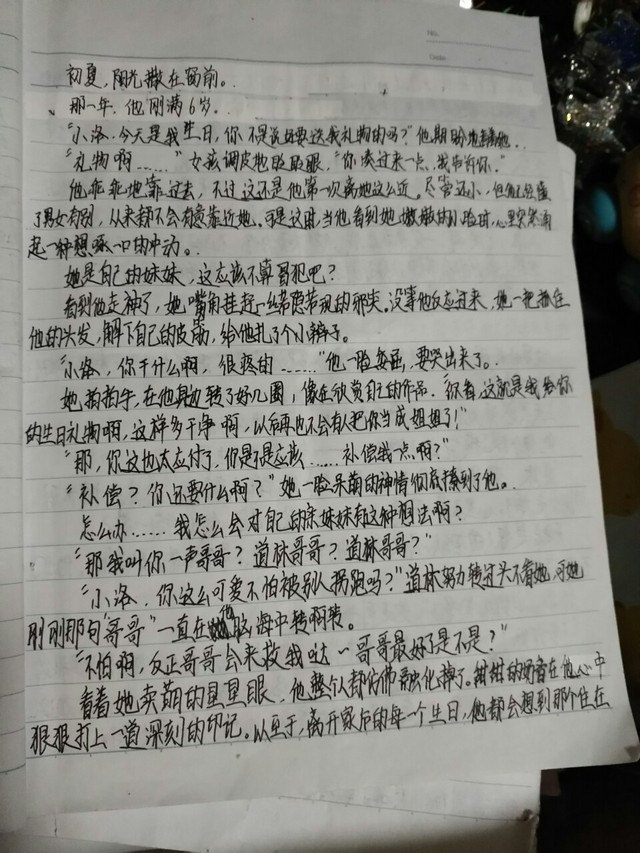 初夏，阳光撒在窗前。
那一年，他刚满6岁。
“小洛，今天是我生日，你不是说好要送我礼物的吗？”他期盼地看着她。
“礼物啊……”女孩调皮地眨眨眼，“你凑过来一点，我告诉你。”
他乖乖地靠过去，不过这还是他第一次离她这么近。尽管还小，但他已经懂
了男女有别，从来都不会有意靠近她。可是这时，当他看到她嫩嫩的小脸时，心里突然有
起一种想啄一口的冲动。
她是自己的妹妹，这应该不算冒犯吧？
看到他走神了，她嘴角挂起一丝若隐若现的邪笑。没等他反应过来，她一把抓住
他的头发，解下自己的皮筋，给他扎了个小辫子。
“小洛，你干什么啊，很疼的……”他一脸委屈，要哭出来了。
她拍拍手，在他身边转了好几圈，像在欣赏自己的作品。“你看，这就是我给你
的生日礼物啊，这样多干净啊，以后再也不会有人把你当成姐姐了！”
“那，你这也太应付了，你是不是应该……补偿我一点啊？”
“补偿？你还要什么啊？”她一脸呆萌的神情彻底揍到了他。
怎么办……我怎么会对自己的亲妹妹有这种想法啊？
“那我叫你一声哥哥？道林哥哥？道林哥哥？”
“小洛，你这么可爱不怕被别人拐跑吗？”道林努力转过头不看她，可她
刚刚那句“哥哥”一直在他脑海中转啊转。
“不怕啊，反正哥哥会来救我哒～哥哥最好了是不是？”
看着她卖萌的星星眼，他整个人都仿佛融化掉了。甜甜的嗓音在他心中
狠狠打上一道深刻的印记。以至于，离开家后的每一个生日，他都会想到那个住在